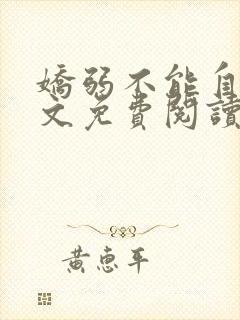 嬌弱不能自
文免費閱讀
黃惠平